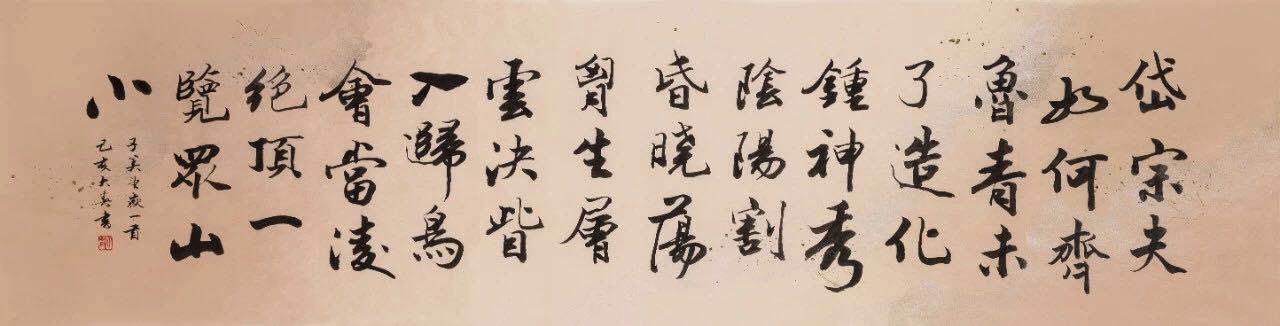 岱宗夫
如何齊
魯青未
了造化
鍾神秀
陰陽割
昏曉蕩
胷生層
雲決眥
入歸鳥
會當凌
絕頂一
覽眾山
小
子美望嶽一首
亥書